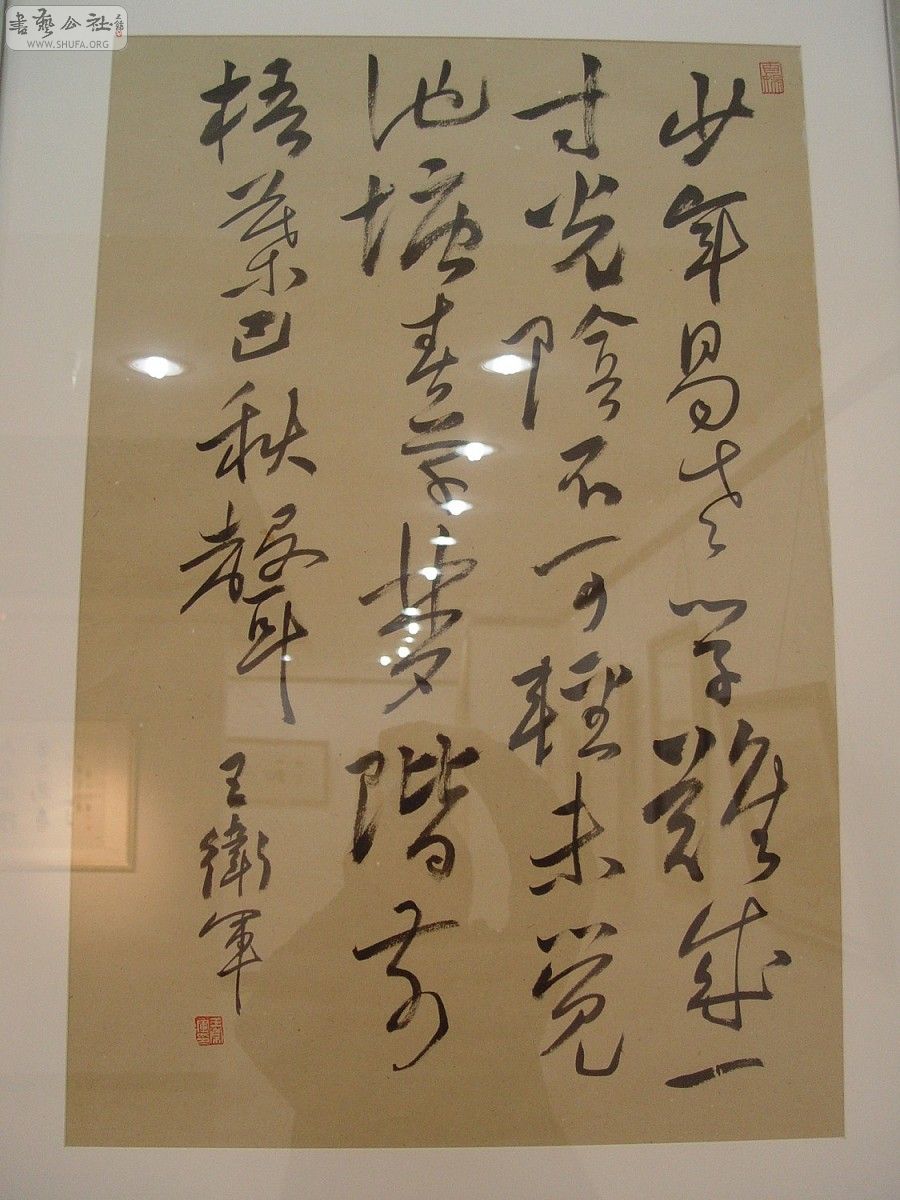 少年易老學難成一
寸光陰不可輕未覺
池塘春草夢階前
梧葉已秋聲
王衛軍
書藝公社
WWW.SHUFA.ORG